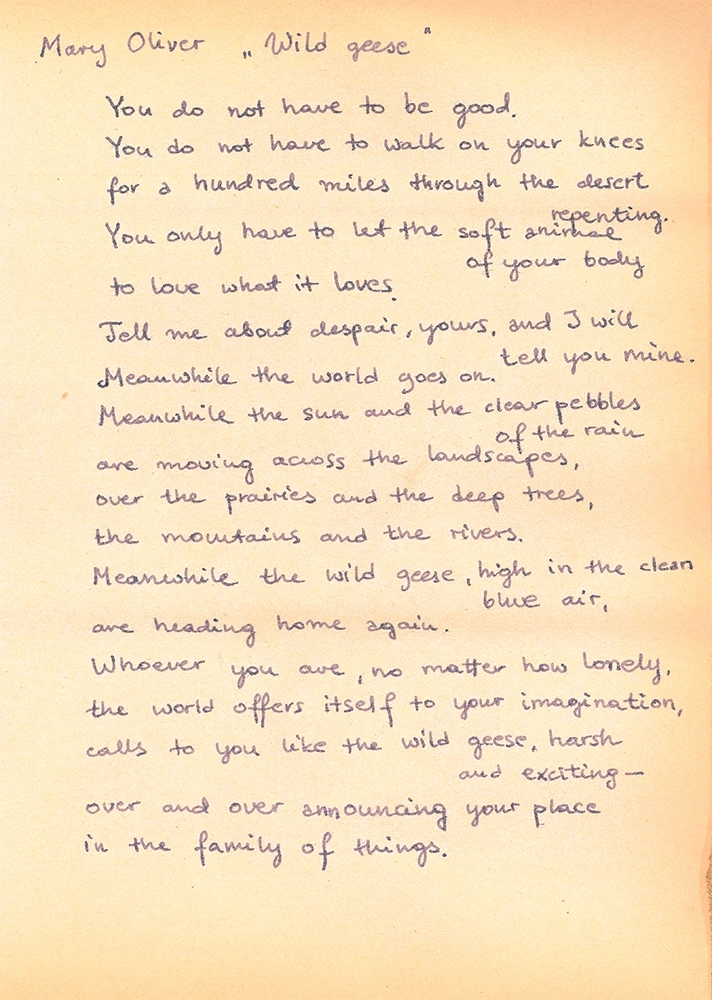 Mary Oliver „Wild geese"
You do not have to be good.
You do not have to walk on your knees
for a hundred miles through the desert
repenting.
You only have to let the soft animal
of your body
to love what it loves.
Tell me about despair, yours, and I will
tell you mine.
Meanwhile the world goes on.
Meanwhile the sun and the clear pebbles
of the rain
are moving across the landscapes,
over the prairies and the deep trees,
the mountains and the rivers.
Meanwhile the wild geese, high in the clean
blue air,
are heading home again.
Whoever you are, no matter how lonely,
the world offers itself to your imagination,
calls to you like the wild geese, harsh
and exciting—
over and over announcing your place
in the family of things.